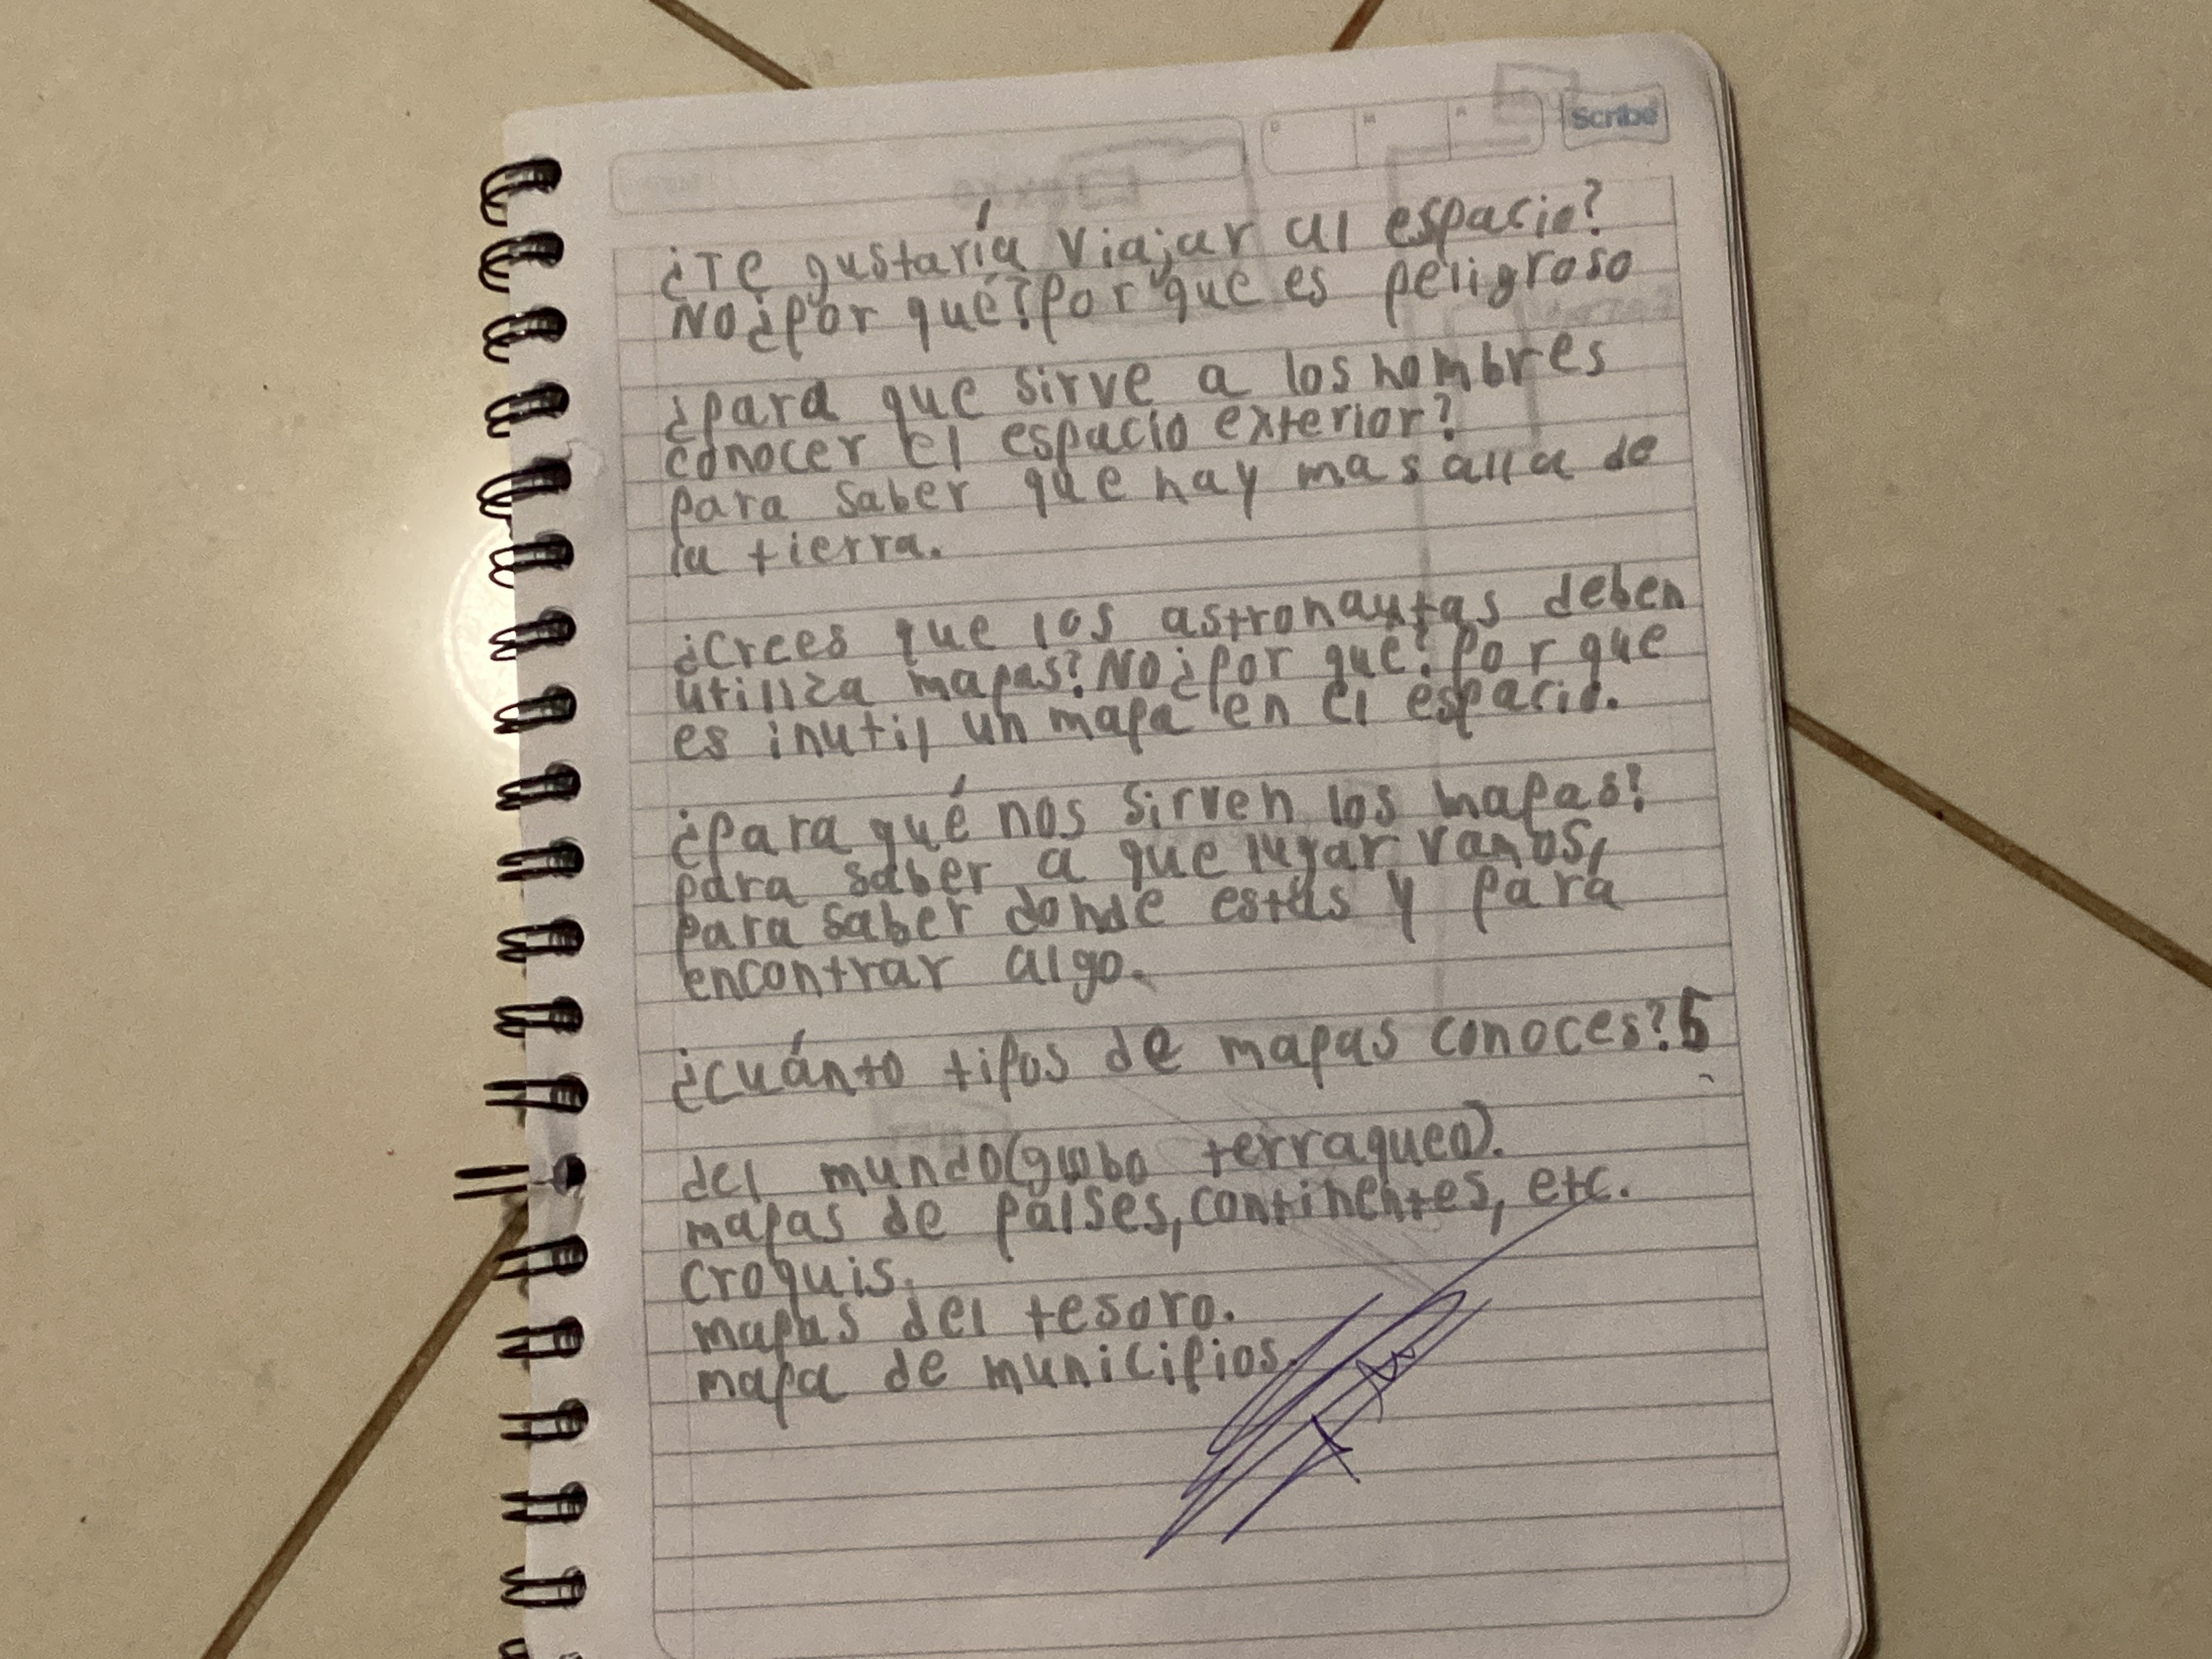 Scribe
¿Te gustaría viajar al espacio?
No ¿por qué? Por que es peligroso
¿para que sirve a los hombres
conocer el espacio exterior?
para saber que hay mas alla de
la tierra.
¿Crees que los astronautas deben
utiliza mapas? No ¿por que? Por que
es inutil un mapa en el espacio.
¿Para qué nos sirven los mapas?
para saber a que lugar vamos,
para saber donde estas y para
encontrar algo.
¿cuánto tipos de mapas conoces? 5
del mundo(globo terraqueo).
mapas de paises, continentes, etc.
croquis.
mapas del tesoro.
mapa de municipios.